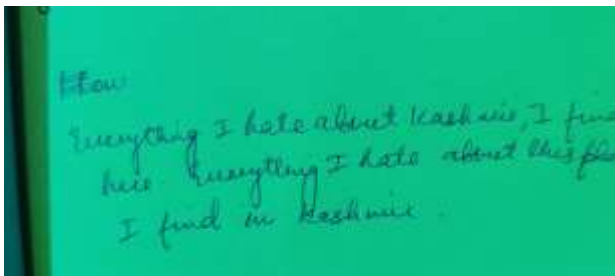 How
Everything I hate about Kashmir, I find
here Everything I hate about this pla
I find in Kashmir.